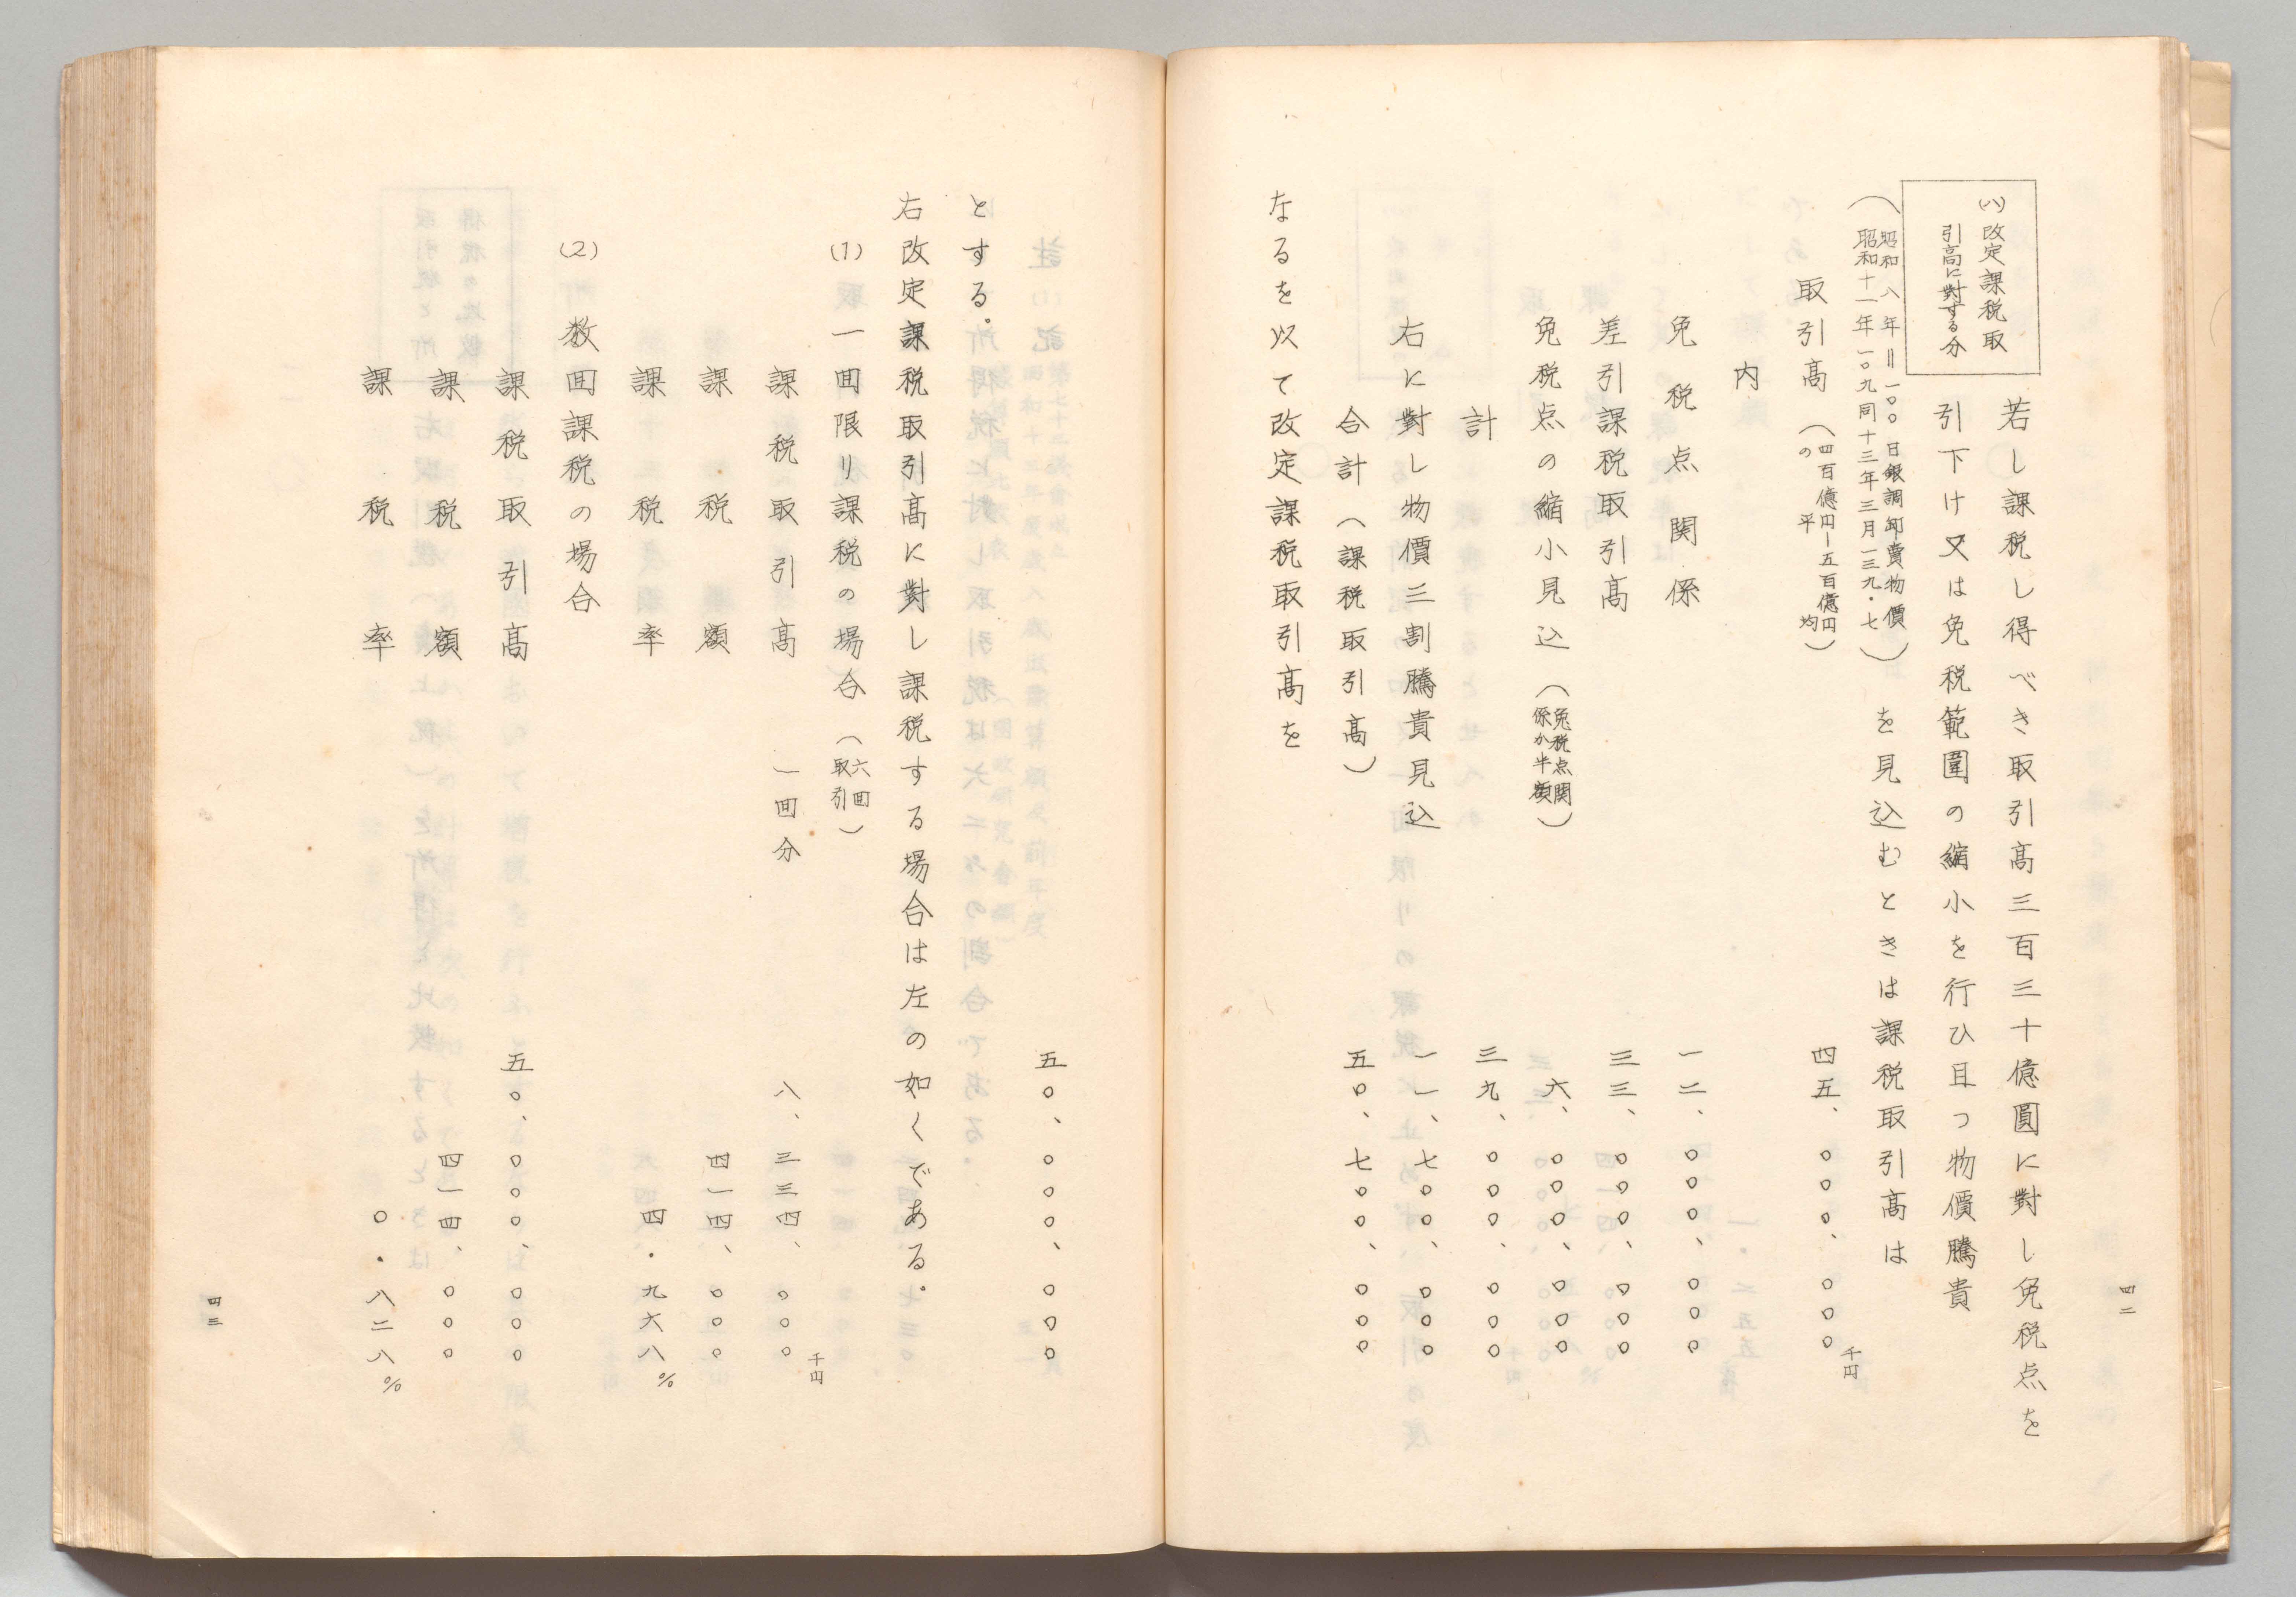 (ハ)改定課税取
引高に對する分
若し課税し得べき取引高三百三十億圓に對し免税点を
引下け又は免税範圍の縮小を行ひ且つ物價騰貴
(昭和八年=一〇〇日銀調卸賣物價
昭和十一年一〇九同十三年三月一三九・七)
を見込むときは課税取引高は
取引高(四百億円ー五百億円
の平均) 四五、〇〇〇、〇〇〇千円
内
免税点関係 一二、〇〇〇、〇〇〇
差引課税取引高 三三、〇〇〇、〇〇〇
免税点の縮小見込(免税点関
係か半額) 六、〇〇〇、〇〇〇
計 三九、〇〇〇、〇〇〇
右に對し物價三割騰貴見込 一一、七〇〇、〇〇〇
合計(課税取引高) 五〇、七〇〇、〇〇〇
なるを以て改定課税取引高を
四二
五〇、〇〇〇、〇〇〇
とする。
右改定課税取引高に對し課税する場合は左の如くである。
(1)一回限リ課税の場合(六回
取引)
課税取引高 一回分 八、三三四、〇〇〇千円
課税額 四一四、〇〇〇
課税率 四・九六八%
(2)数回課税の場合
課税取引高 五〇、〇〇〇、〇〇〇
課税額 四一四、〇〇〇
課税率 〇・八二八%
四三